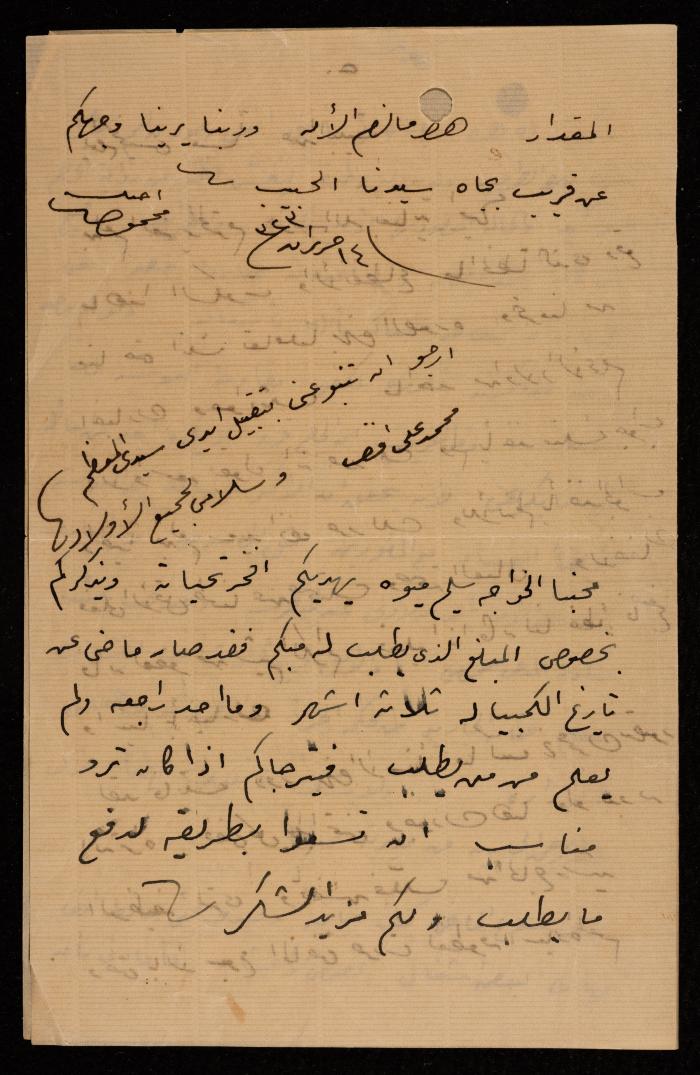 المقدار هذا ما لزم الآن وربنا يرينا وجهكم
عن قريب بجاه سيدنا الحبيب
١٤ حزيران
ارجو ان تنوبو عني بتقبيل ايدي سيدي المعظم
محمد علي افندي وسلامي لجميع الأولاد
محبنا الخواجه سليم ميوه يهديكم افخر تحياته ويذكركم
بخصوص المبلغ الذي يطلب له منكم فقد صار ماضى عن
تاريخ الكمبياله ثلاثة اشهر وما احد راجعه ولم
يعلم من من يطلب فيترجاكم اذا كان ترو
مناسب ان تسعوا بطريقه لدفع
ما يطلب ولكم مزيد الشكر